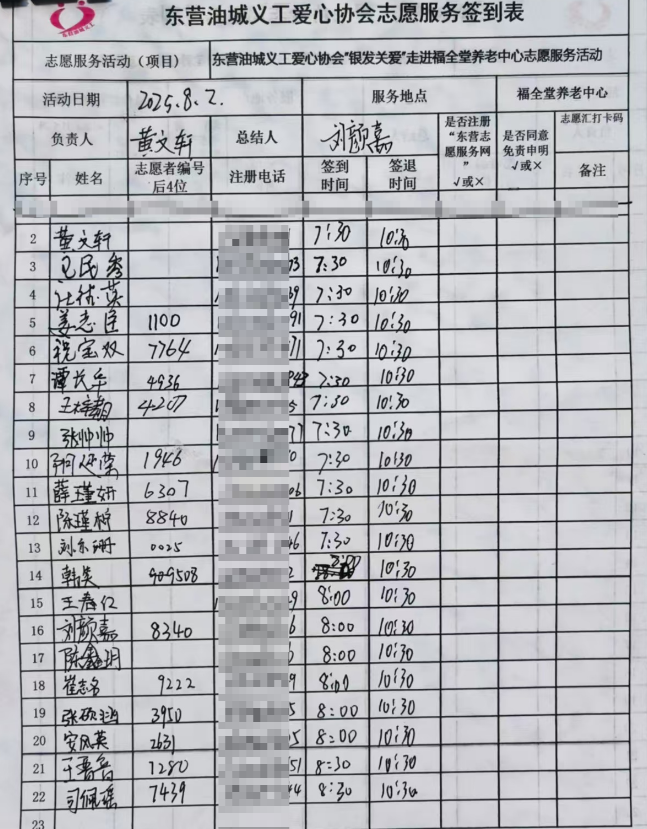 东营油城义工爱心协会志愿服务签到表
志愿服务活动（项目） 东营油城义工爱心协会"银发关爱"走进福全堂养老中心志愿服务活动
活动日期 2025.8.2. 服务地点 福全堂养老中心
负责人 黄文轩 总结人 刘颜嘉 是否注册“东营志愿服务网”√或× 是否同意免责申明√或× 志愿汇打卡码
序号 姓名 志愿者编号后4位 注册电话 签到时间 签退时间 备注
2 黄文轩 7:30 10:30
3 7:30 10:30
4 7:30 10:30
5 姜志臣 1100 7:30 10:30
6 祝宝双 7764 7:30 10:30
7 谭长军 4936 7:30 10:30
8 4207 7:30 10:30
9 张帅帅 7:30 10:30
10 1946 7:30 10:30
11 薛瑾妍 6307 7:30 10:30
12 8840 7:30 10:30
13 0025 7:30 10:30
14 韩英 909508 10:30
15 王春仁 8:00 10:30
16 刘颜嘉 8340 8:00 10:30
17 陈鑫玥 8:00 10:30
18 崔志名 9222 8:00 10:30
19 3950 8:00 10:30
20 安凤英 2631 8:00 10:30
21 1280 8:30 10:30
22 司佩瑶 7439 8:30 10:30
23